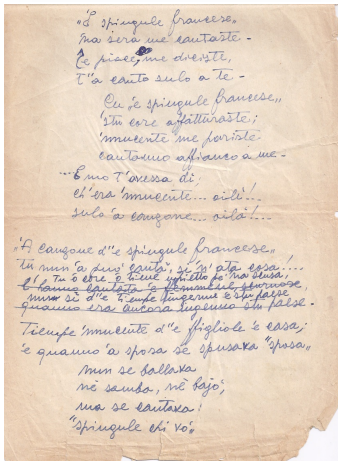 "'E spingule francese„
na sera me cantaste -
Te piace, me diciste,
T''a canto sulo a te -
Cu 'e spingule francese„
'stu core affatturaste;
'nnucente me pariste
cantanno affianco a me -
E mo t'avessa di,
ch'era 'nnucente... oilì!...
sulo 'a canzone... oilà!...
'A canzone d''e spingule francese„
tu nun 'a può cantà, si n'ata cosa!...
tu 'o core o tiene
quanno era ancora ingenuo stu paese.
Tiempe 'nnucente d''e figliole 'e casa;
'e quanno 'a sposa se spusava "sposa„
nun se ballava
né samba, nè bajò;
ma se cantava:
"spingule chi vò„